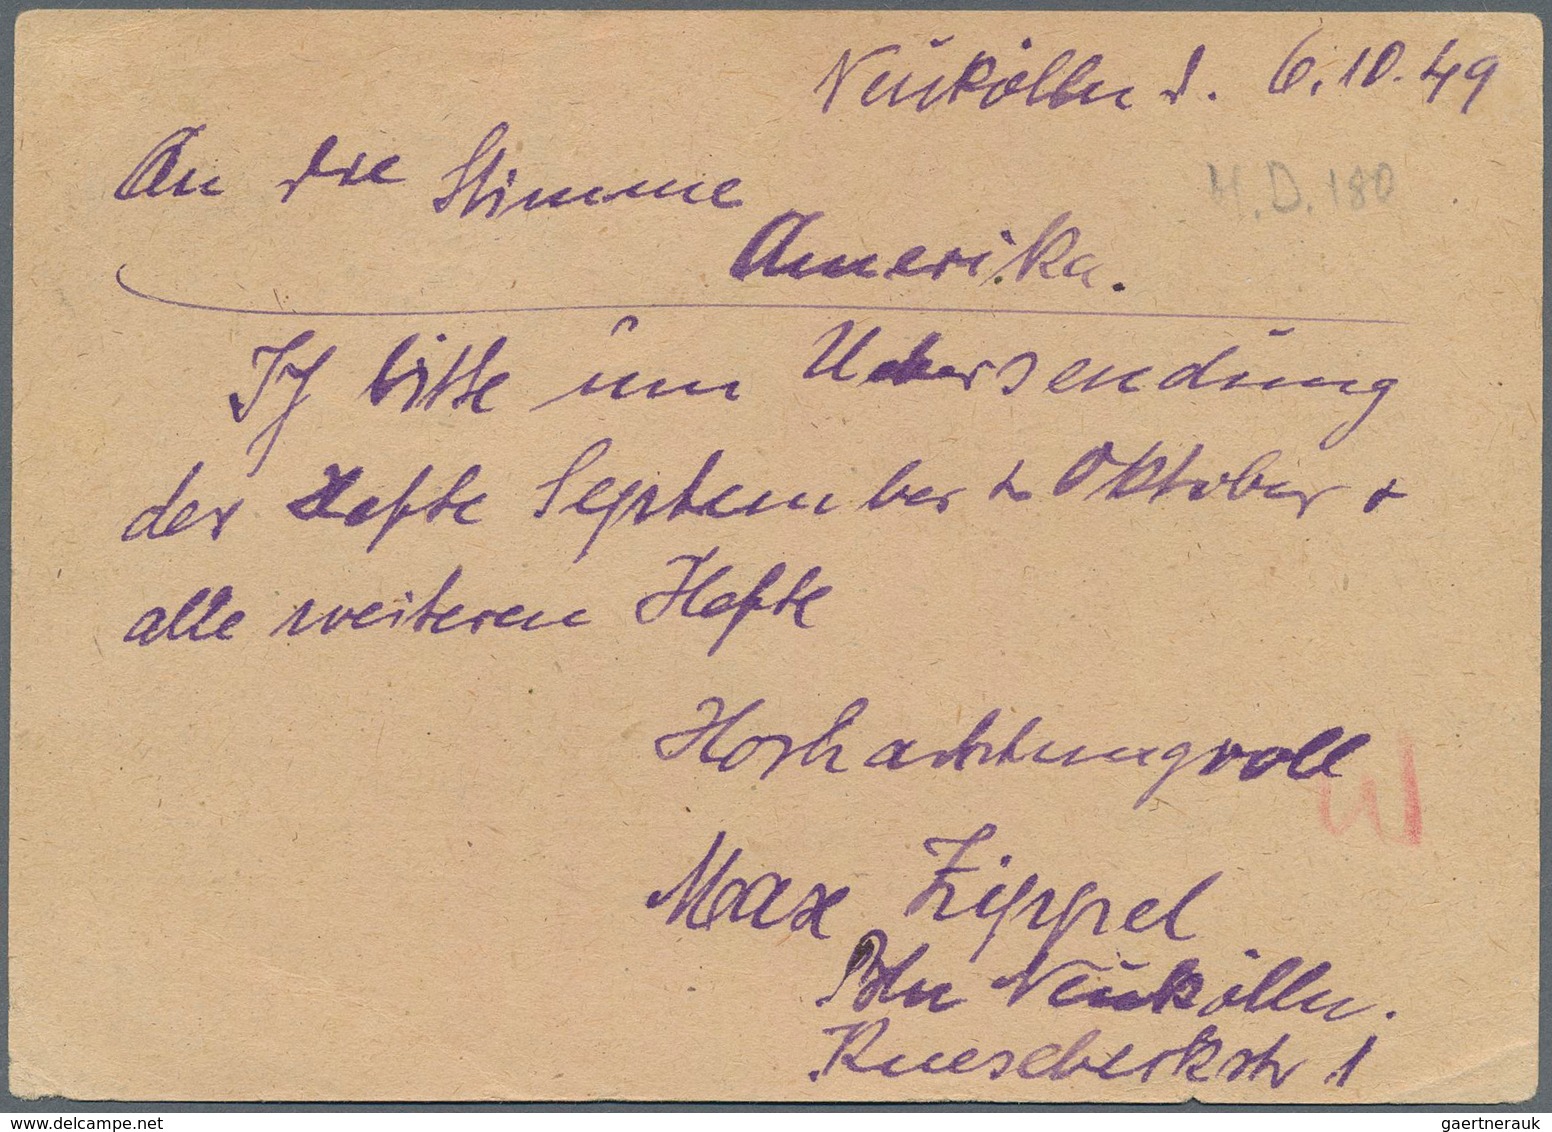 Neukölln d. 6.10.49
An die Stimme
H.D. 180
Amerika.
Ich bitte um Uebersendung
der Hefte September u. Oktober +
alle weiteren Hefte
Hochachtungvoll
Max Zippel
Bln Neukölln.
Knesebeckstr 1
gaertnerauk@delcampe.net